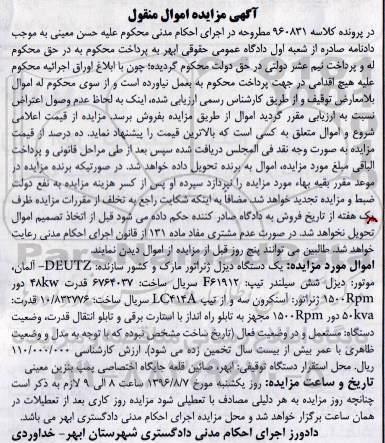 آگهی مزایده اموال منقول
در پرونده کلاسه ۹۶۰۸۳۱ مطروحه در اجرای احکام مدنی محکوم علیه حسن معینی به موجب
دادنامه صادره از شعبه اول دادگاه عمومی حقوقی ابهر به پرداخت محکوم به در حق محکوم
له و پرداخت نیم عشر دولتی در حق دولت محکوم گردیده؛ چون با ابلاغ اوراق اجرائیه محکوم
علیه هیچ اقدامی در جهت پرداخت محکوم به بعمل نیاورده است و از سوی محکوم له اموال
بلامعارض توقیف و از طریق کارشناس رسمی ارزیابی شده، اینک به لحاظ عدم وصول اعتراض
نسبت به ارزیابی مقرر گردید اموال از طریق مزایده بفروش برسد. مزایده از قیمت اعلامی
شروع و اموال متعلق به کسی است که بالاترین قیمت را پیشنهاد نماید. ده درصد از قیمت
مزایده به صورت وجه نقد فی المجلس دریافت شده سپس بعد از طی مراحل قانونی و پرداخت
الباقی مبلغ مورد مزایده، اموال به برنده تحویل داده خواهد شد. در صورتیکه برنده مزایده در
موعد مقرر بقیه بهاء مورد مزایده را نپردازد سپرده او پس از کسر هزینه مزایده به نفع دولت
ضبط و مزایده تجدید خواهد شد. مضافا به اینکه شکایت راجع به تخلف از مقررات مزایده ظرف
یک هفته از تاریخ فروش به دادگاه صادر کننده حکم داده می شود قبل از اتخاذ تصمیم اموال
تحویل نخواهد شد. در صورت عدم مشتری مفاد ماده ۱۳۱ از قانون اجرای احکام مدنی رعایت
خواهد شد. طالبین می توانند پنج روز قبل از مزایده از اموال دیدن نمایند.
اموال مورد مزایده: یک دستگاه دیزل ژنراتور مارک و کشور سازنده: DEUTZ- آلمان،
موتور: دیزل شش سیلندر تیپ: F۶۱۹۱۲ سریال ساخت: ۶۷۶۴۰۳۷ قدرت ۴۸kw دور
۱۵۰۰Rpm ژنراتور: آستکرون سه و از تیپ LC۴۱۴A سریال ساخت: ۱۰/۸۳۲۷۷۶ قدرت:
۵۰kva دور ۱۵۰۰Rpm مجهز به تابلو راه انداز با استارت برقی و تابلو انتقال قدرت، وضعیت
دستگاه: مستعمل و در وضعیت فعال (تاریخ ساخت مشخص نبوده که با توجه به مدل و وضعیت
ظاهری با عمر بیش از بیست سال تخمین زده می شود). ارزش کارشناسی ۱۱۰/۰۰۰/۰۰۰
ریال. محل استقرار دستگاه توقیفی: ابهر، صائین قلعه جایگاه اختصاصی پمپ بنزین معینی
تاریخ و ساعت مزایده: روز یکشنبه مورخ ۱۳۹۶/۸/۷ ساعت ۸ الی ۹ لازم به ذکر است
چنانچه روز مزایده به هر دلیلی مصادف با تعطیلی شود مزایده روز کاری بعد از تعطیلات در
همان ساعت برگزار خواهد شد و محل مزایده اجرای احکام مدنی دادگستری ابهر می باشد.
دادورز اجرای احکام مدنی دادگستری شهرستان ابهر- خداوردی